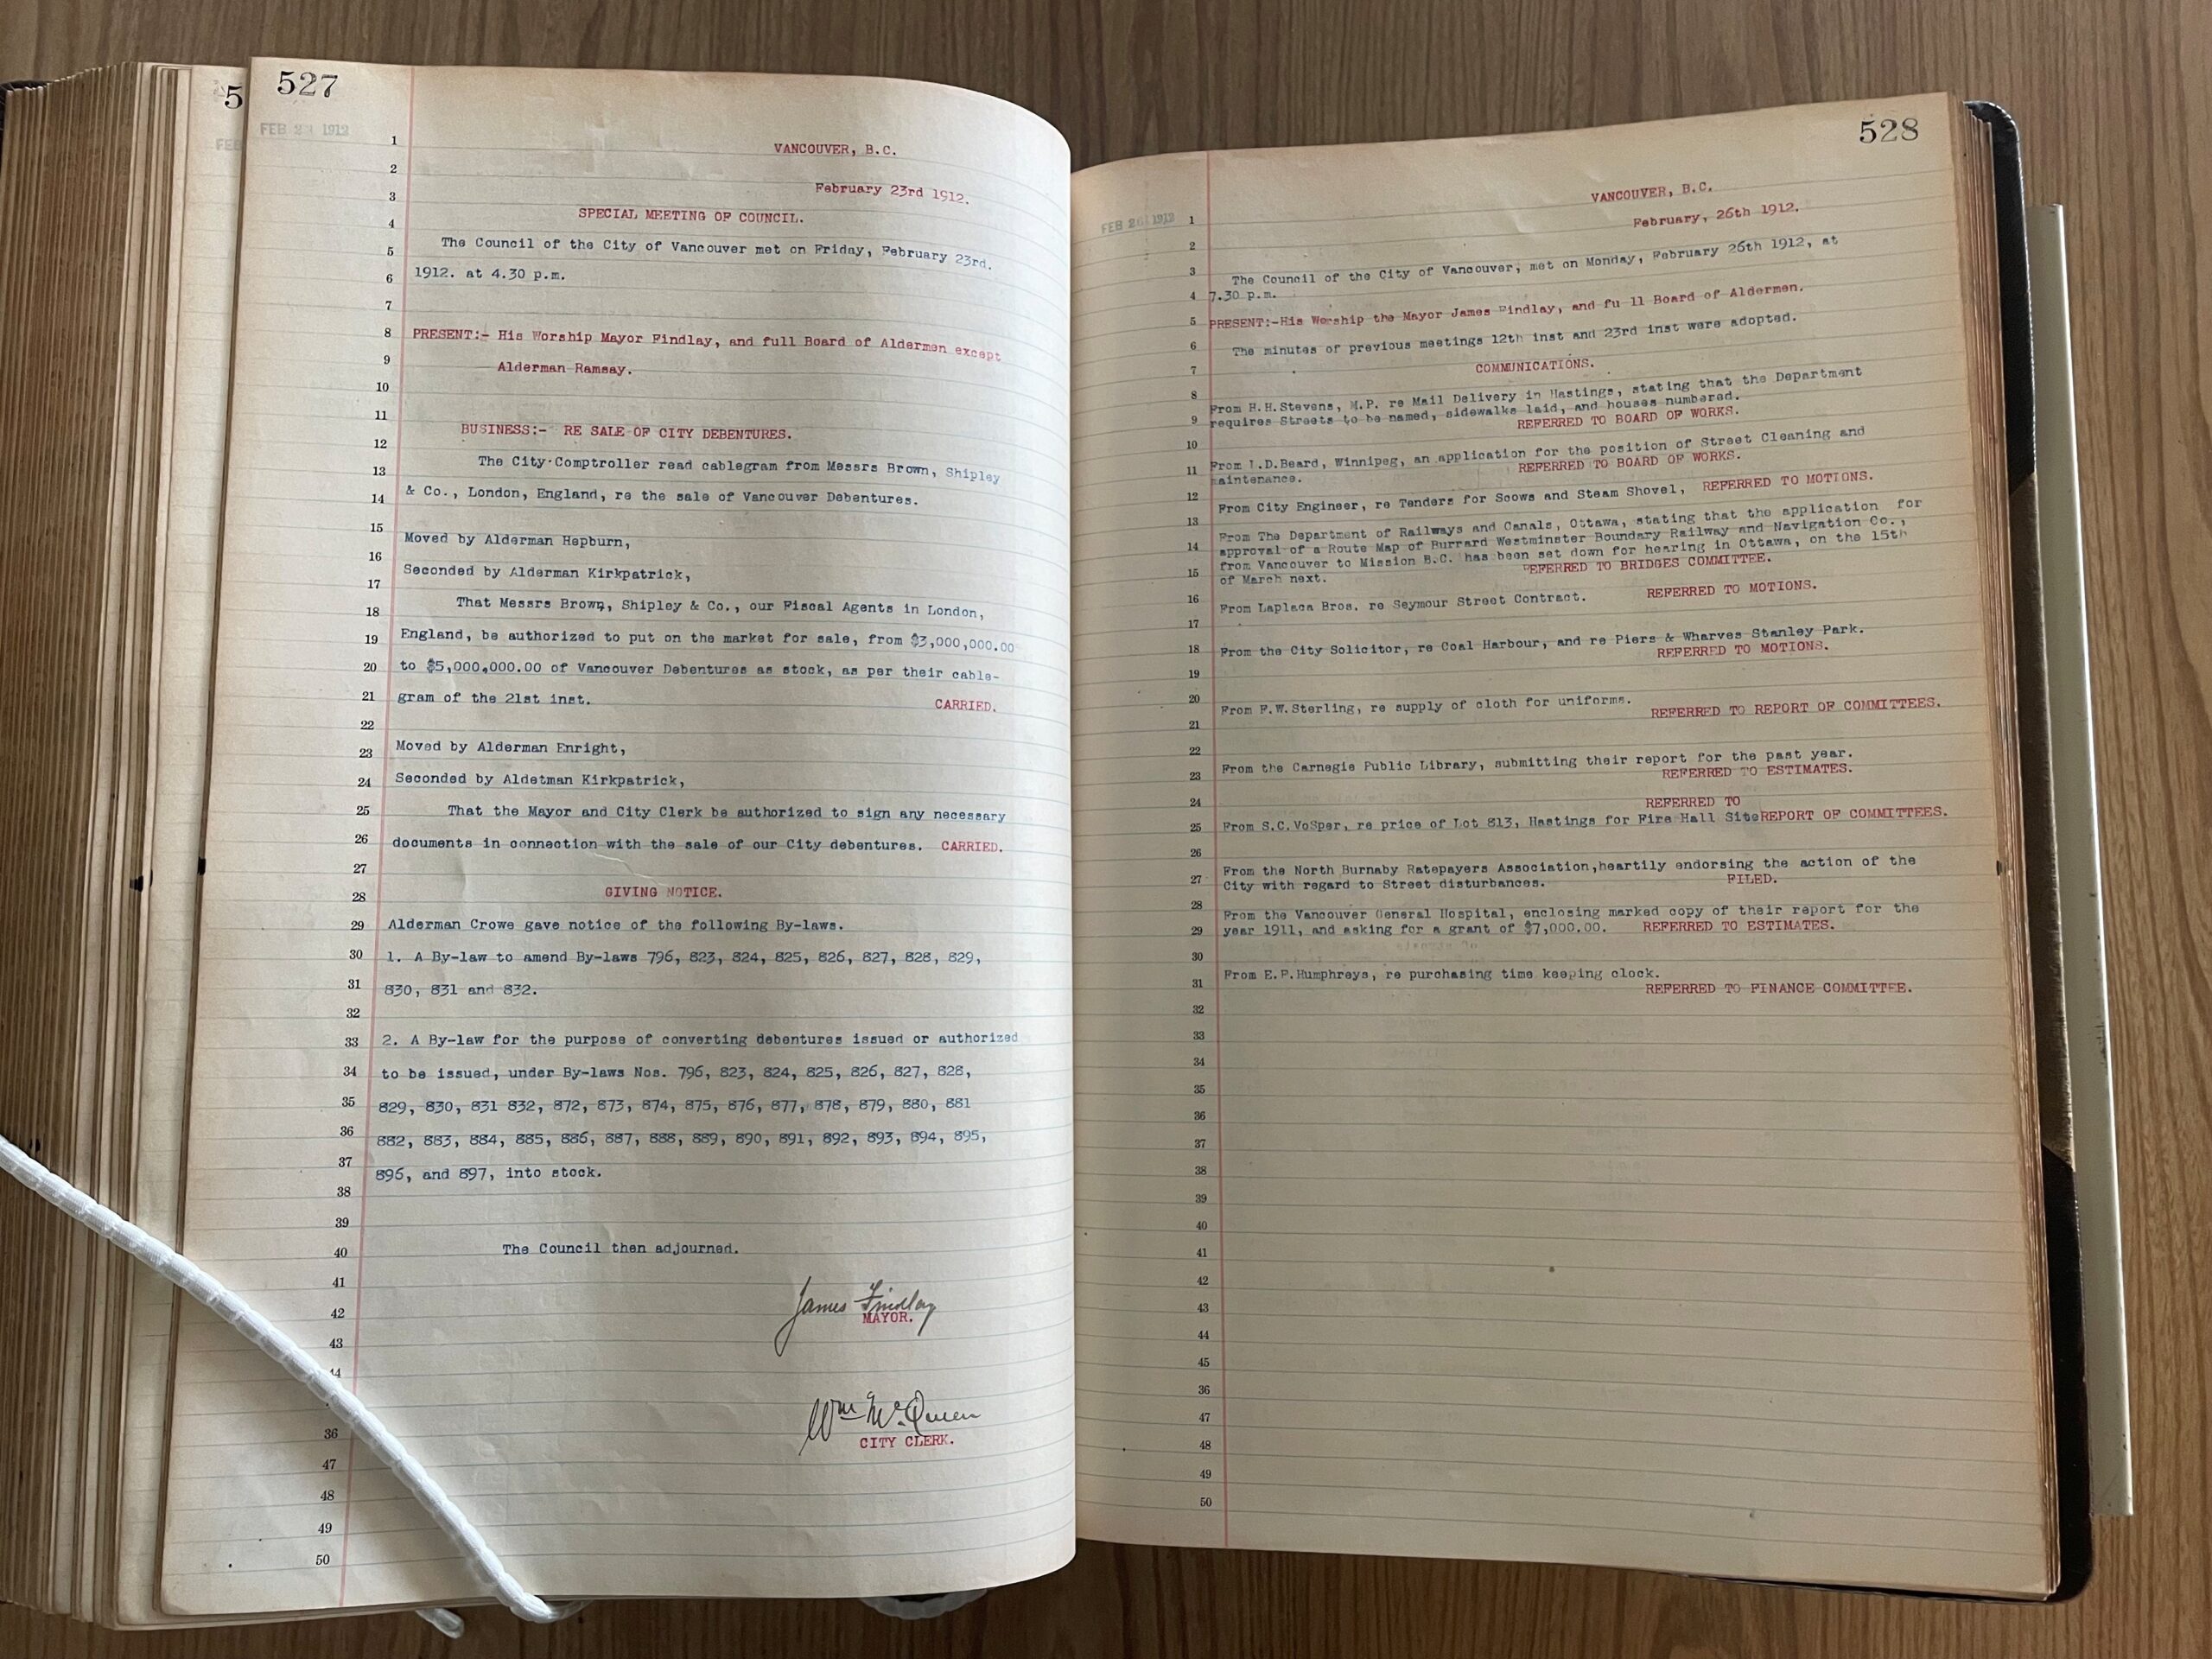 5
527
FEB 23 1912
VANCOUVER, B.C.
February 23rd 1912.
SPECIAL MEETING OF COUNCIL.
The Council of the City of Vancouver met on Friday, February 23rd.
1912. at 4.30 p.m.
PRESENT:- His Worship Mayor Findlay, and full Board of Aldermen except
Alderman Ramsay.
BUSINESS:- RE SALE OF CITY DEBENTURES.
The City Comptroller read cablegram from Messrs Brown, Shipley
& Co., London, England, re the sale of Vancouver Debentures.
Moved by Alderman Hepburn,
Seconded by Alderman Kirkpatrick,
That Messrs Brown, Shipley & Co., our Fiscal Agents in London,
England, be authorized to put on the market for sale, from $3,000,000.00
to $5,000,000.00 of Vancouver Debentures as stock, as per their cable-
gram of the 21st inst. CARRIED.
Moved by Alderman Enright,
Seconded by Aldetman Kirkpatrick,
That the Mayor and City Clerk be authorized to sign any necessary
documents in connection with the sale of our City debentures. CARRIED.
GIVING NOTICE.
Alderman Crowe gave notice of the following By-laws.
1. A By-law to amend By-laws 796, 823, 824, 825, 826, 827, 828, 829,
830, 831 and 832.
2. A By-law for the purpose of converting debentures issued or authorized
to be issued, under By-laws Nos. 796, 823, 824, 825, 826, 827, 828,
829, 830, 831 832, 872, 873, 874, 875, 876, 877, 878, 879, 880, 881
882, 883, 884, 885, 886, 887, 888, 889, 890, 891, 892, 893, 894, 895,
896, and 897, into stock.
The Council then adjourned.
James Findlay
MAYOR.
Wm McQueen
CITY CLERK.
528
FEB 26 1912
VANCOUVER, B.C.
February, 26th 1912.
The Council of the City of Vancouver, met on Monday, February 26th 1912, at
7.30 p.m.
PRESENT:-His Worship the Mayor James Findlay, and fu ll Board of Aldermen.
The minutes of previous meetings 12th inst and 23rd inst were adopted.
COMMUNICATIONS.
From H.H.Stevens, M.P. re Mail Delivery in Hastings, stating that the Department
requires Streets to be named, sidewalks laid, and houses numbered.
REFERRED TO BOARD OF WORKS.
From I.D.Beard, Winnipeg, an application for the position of Street Cleaning and
maintenance. REFERRED TO BOARD OF WORKS.
From City Engineer, re Tenders for Scows and Steam Shovel, REFERRED TO MOTIONS.
From The Department of Railways and Canals, Ottawa, stating that the application for
approval of a Route Map of Burrard Westminster Boundary Railway and Navigation Co.,
from Vancouver to Mission B.C. has been set down for hearing in Ottawa, on the 15th
of March next. REFERRED TO BRIDGES COMMITTEE.
From Laplaca Bros. re Seymour Street Contract. REFERRED TO MOTIONS.
From the City Solicitor, re Coal Harbour, and re Piers & Wharves Stanley Park.
REFERRED TO MOTIONS.
From F.W.Sterling, re supply of cloth for uniforms.
REFERRED TO REPORT OF COMMITTEES.
From the Carnegie Public Library, submitting their report for the past year.
REFERRED TO ESTIMATES.
REFERRED TO
From S.C.VoSper, re price of Lot 813, Hastings for Fire Hall SiteREPORT OF COMMITTEES.
From the North Burnaby Ratepayers Association,heartily endorsing the action of the
City with regard to Street disturbances. FILED.
From the Vancouver General Hospital, enclosing marked copy of their report for the
year 1911, and asking for a grant of $7,000.00. REFERRED TO ESTIMATES.
From E.P.Humphreys, re purchasing time keeping clock.
REFERRED TO FINANCE COMMITTEE.